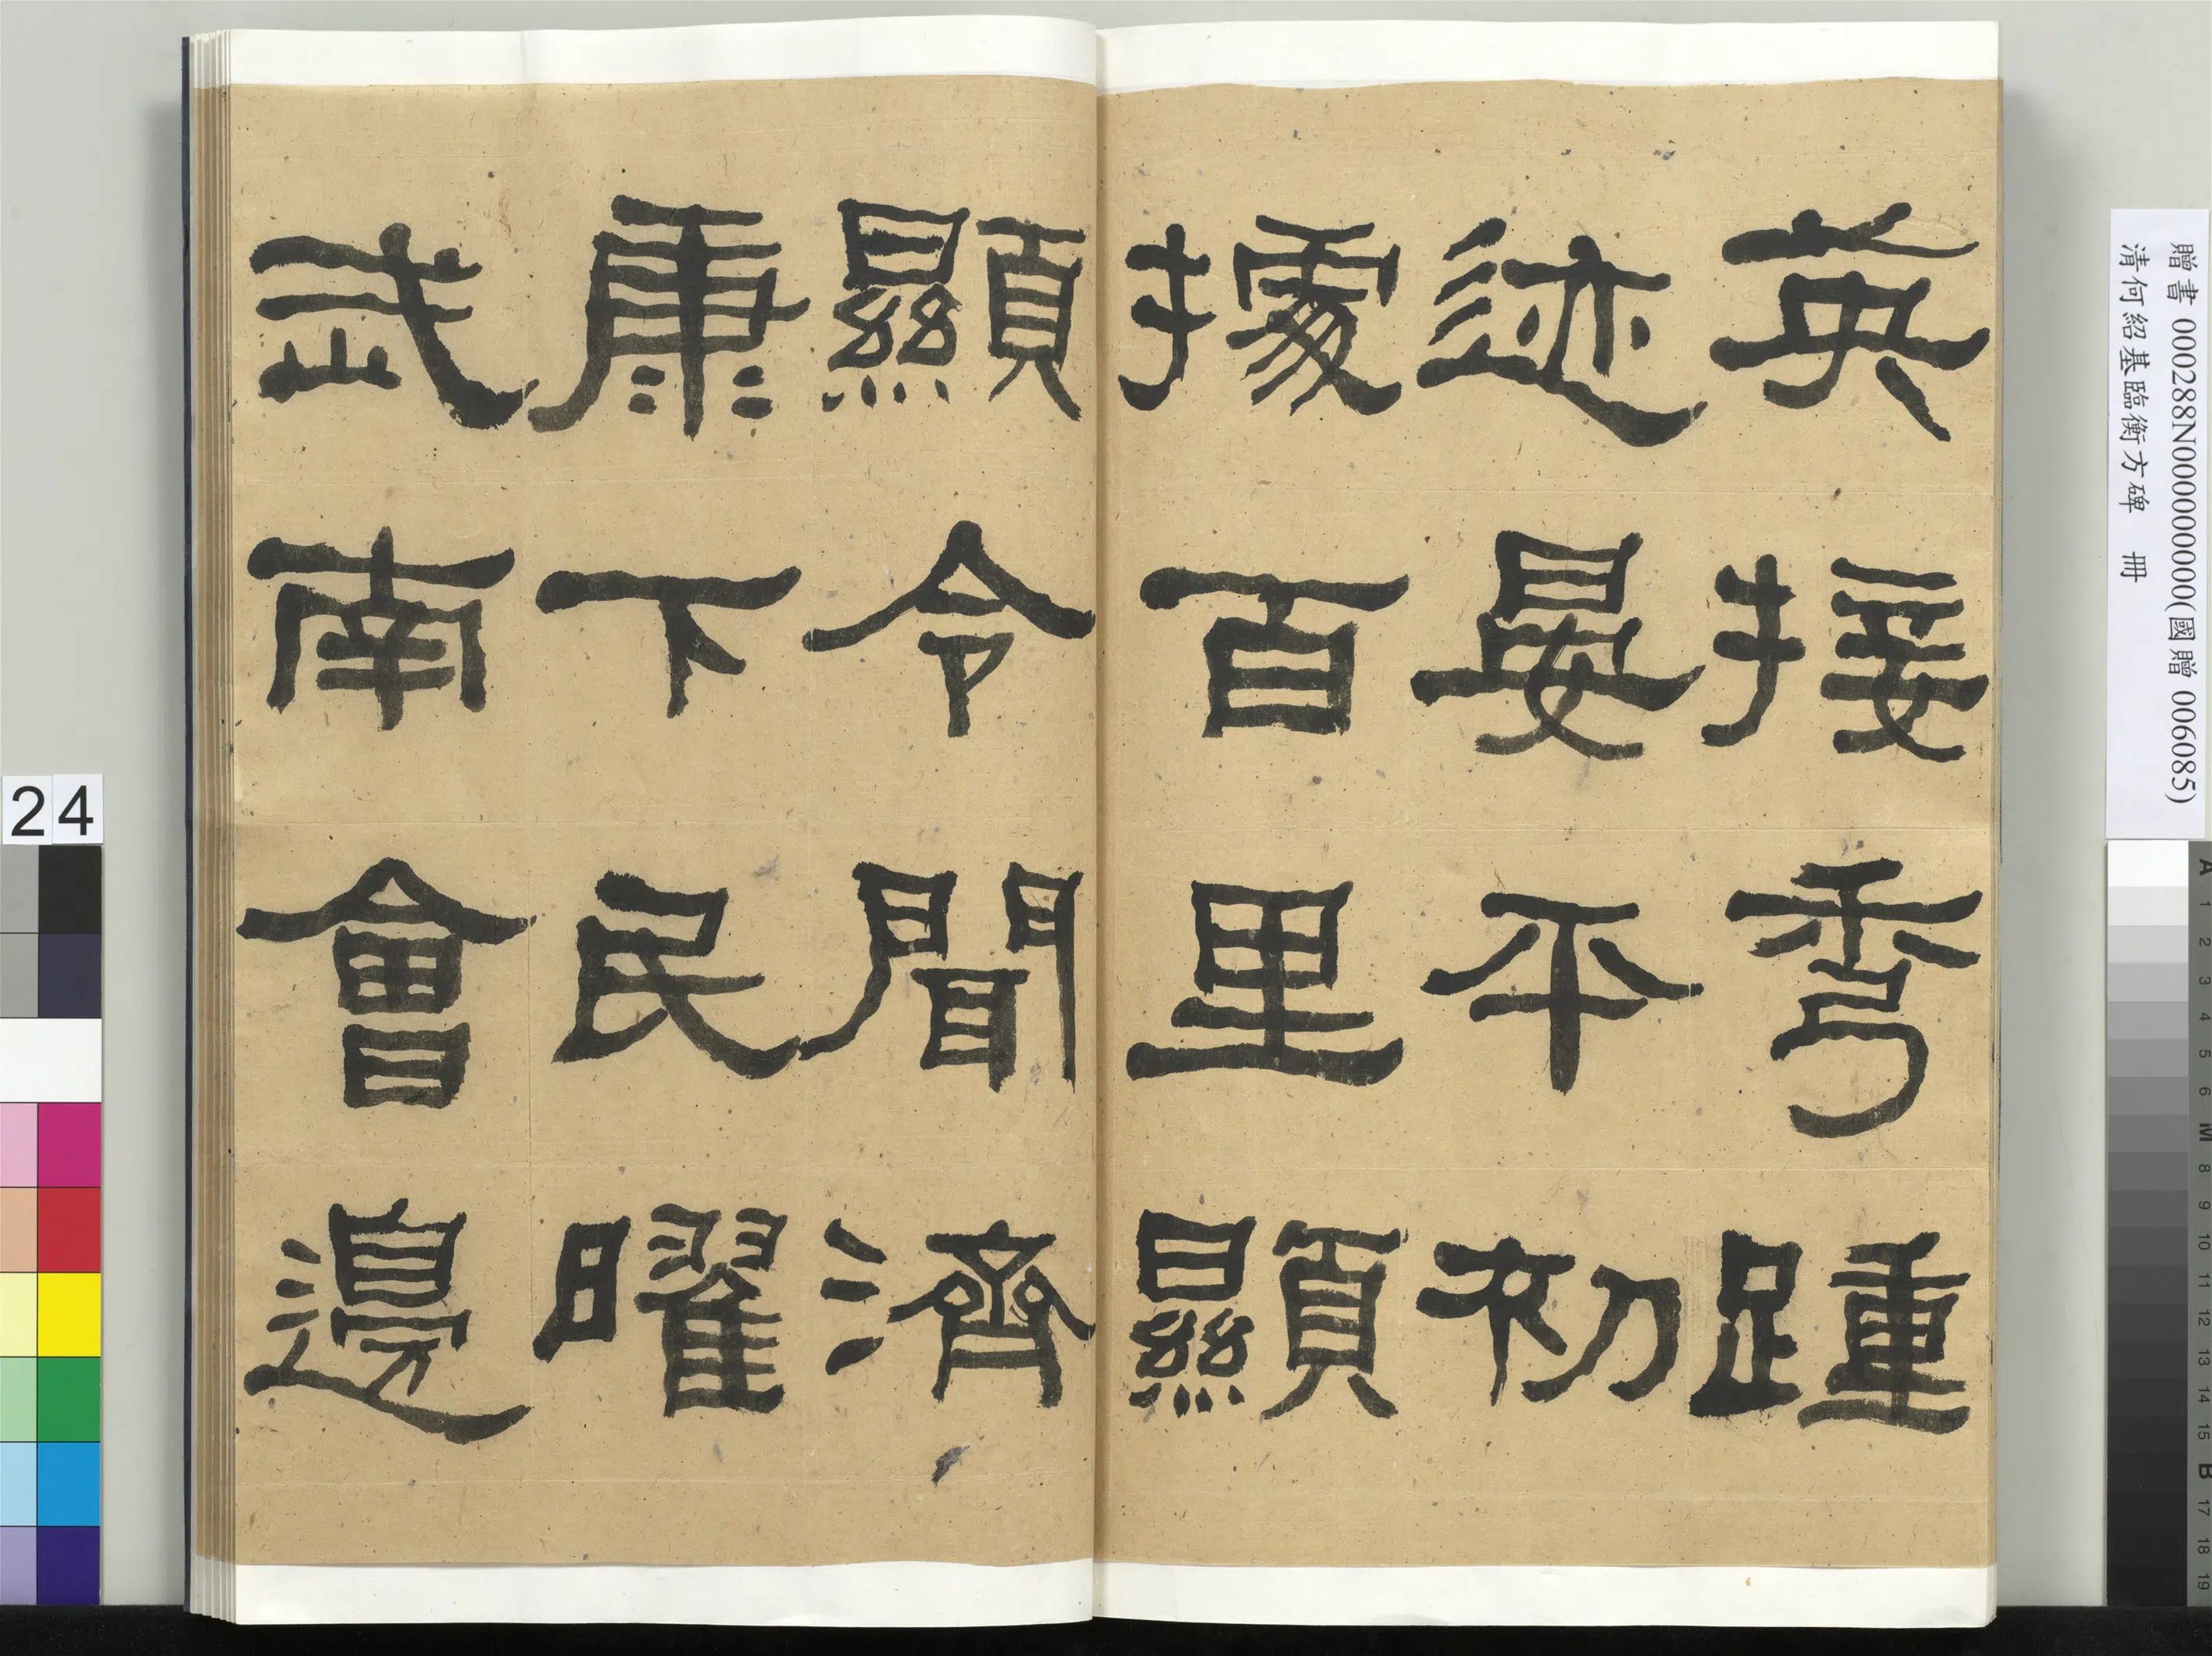 英接秀踵
迹晏平初
據百里顯
顯令聞濟
康下民曜
武南會邊
贈書 000288N000000000(國贈 006085)
清何紹基臨衡方碑 冊
24
A 1 2 3 4 5 6 M 8 9 10 11 12 13 14 15 B 17 18 19